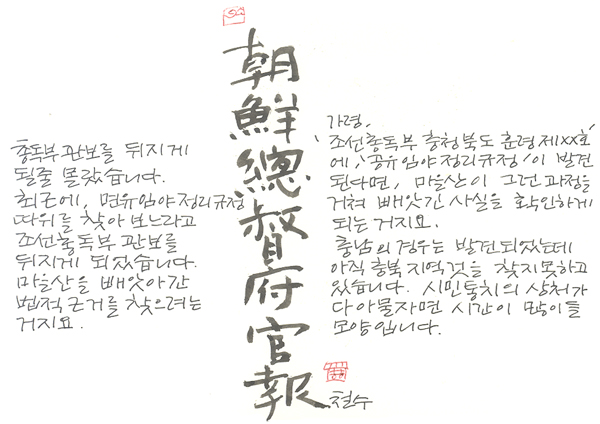 총독부 관보를 뒤지게
될줄 몰랐습니다.
최근에, 면유임야정리규정'
따위를 찾아 보느라고
조선총독부 관보를
뒤지게 되었습니다.
마을산을 빼앗아간
법적근거를 찾으려는
거지요.
朝鮮總督府官報
가령,
'조선총독부 충청북도 훈령 제xx호'
에, '공유임야정리규정'이 발견
된다면, 마을산이 그런과정을
거쳐 빼앗긴 사실을 확인하게
되는 거지요.
충남의경우는 발견되었는데
아직 충북지역것을 찾지못하고
있습니다. 시민통치의 상처가
다 아물자면 시간이 많이들
모양입니다.
철수